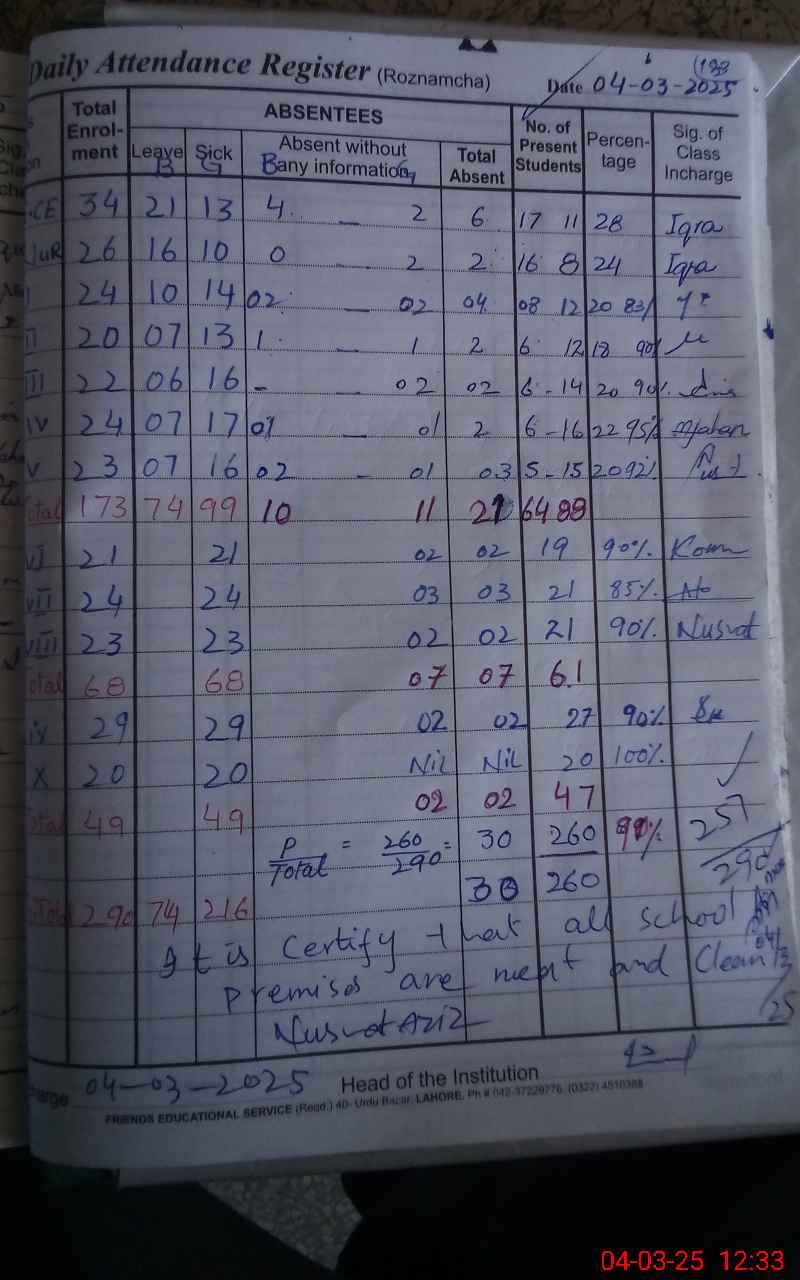 Daily Attendance Register (Roznamcha) Date 04-03-2025
Total Enrolment ABSENTEES No. of Present Students Percentage Sig. of Class Incharge
Leave Sick Absent without any information Total Absent
B G B G
CE 34 21 13 4 — 2 6 17 11 28 Iqra
JuR 26 16 10 0 — 2 2 16 8 24 Iqra
I 24 10 14 02 — 02 04 08 12 20 83%
II 20 07 13 1 — 1 2 6 12 18 90%
III 22 06 16 - — 02 02 6 - 14 20 90%
IV 24 07 17 01 — 01 2 6 - 16 22 95%
V 23 07 16 02 - 01 03 5 - 15 20 92%
Total 173 74 99 10 11 21 64 88
VI 21 21 02 02 19 90%
VII 24 24 03 03 21 85%
VIII 23 23 02 02 21 90% Nusrat
Total 68 68 07 07 61
IX 29 29 02 02 27 90%
X 20 20 Nil Nil 20 100%
Total 49 49 02 02 47
P/Total = 260/290 = 30 260 257/290
30 260
Total 290 74 216
It is Certify that all school
premises are neat and Clean
Nusrat Aziz
04-03-2025 Head of the Institution
FRIENDS EDUCATIONAL SERVICE (Regd.) 40- Urdu Bazar, LAHORE. Ph # 042-37229776, (0322) 4510388
04-03-25 12:33